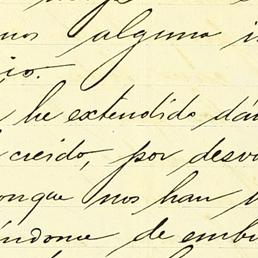 nos alguna i
io.
he extendido dá
creido, por desv
onque nos han
ándome de emb